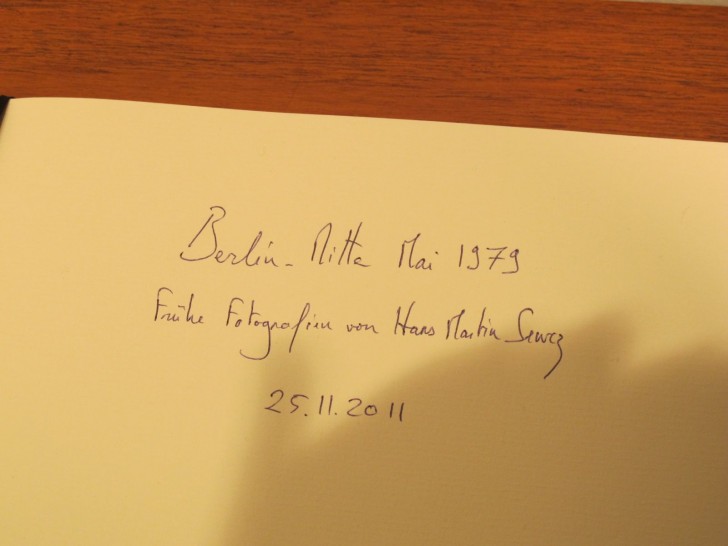 Berlin-Mitte Mai 1979
Frühe Fotografien von Hans Martin Sewcz
25.11.2011